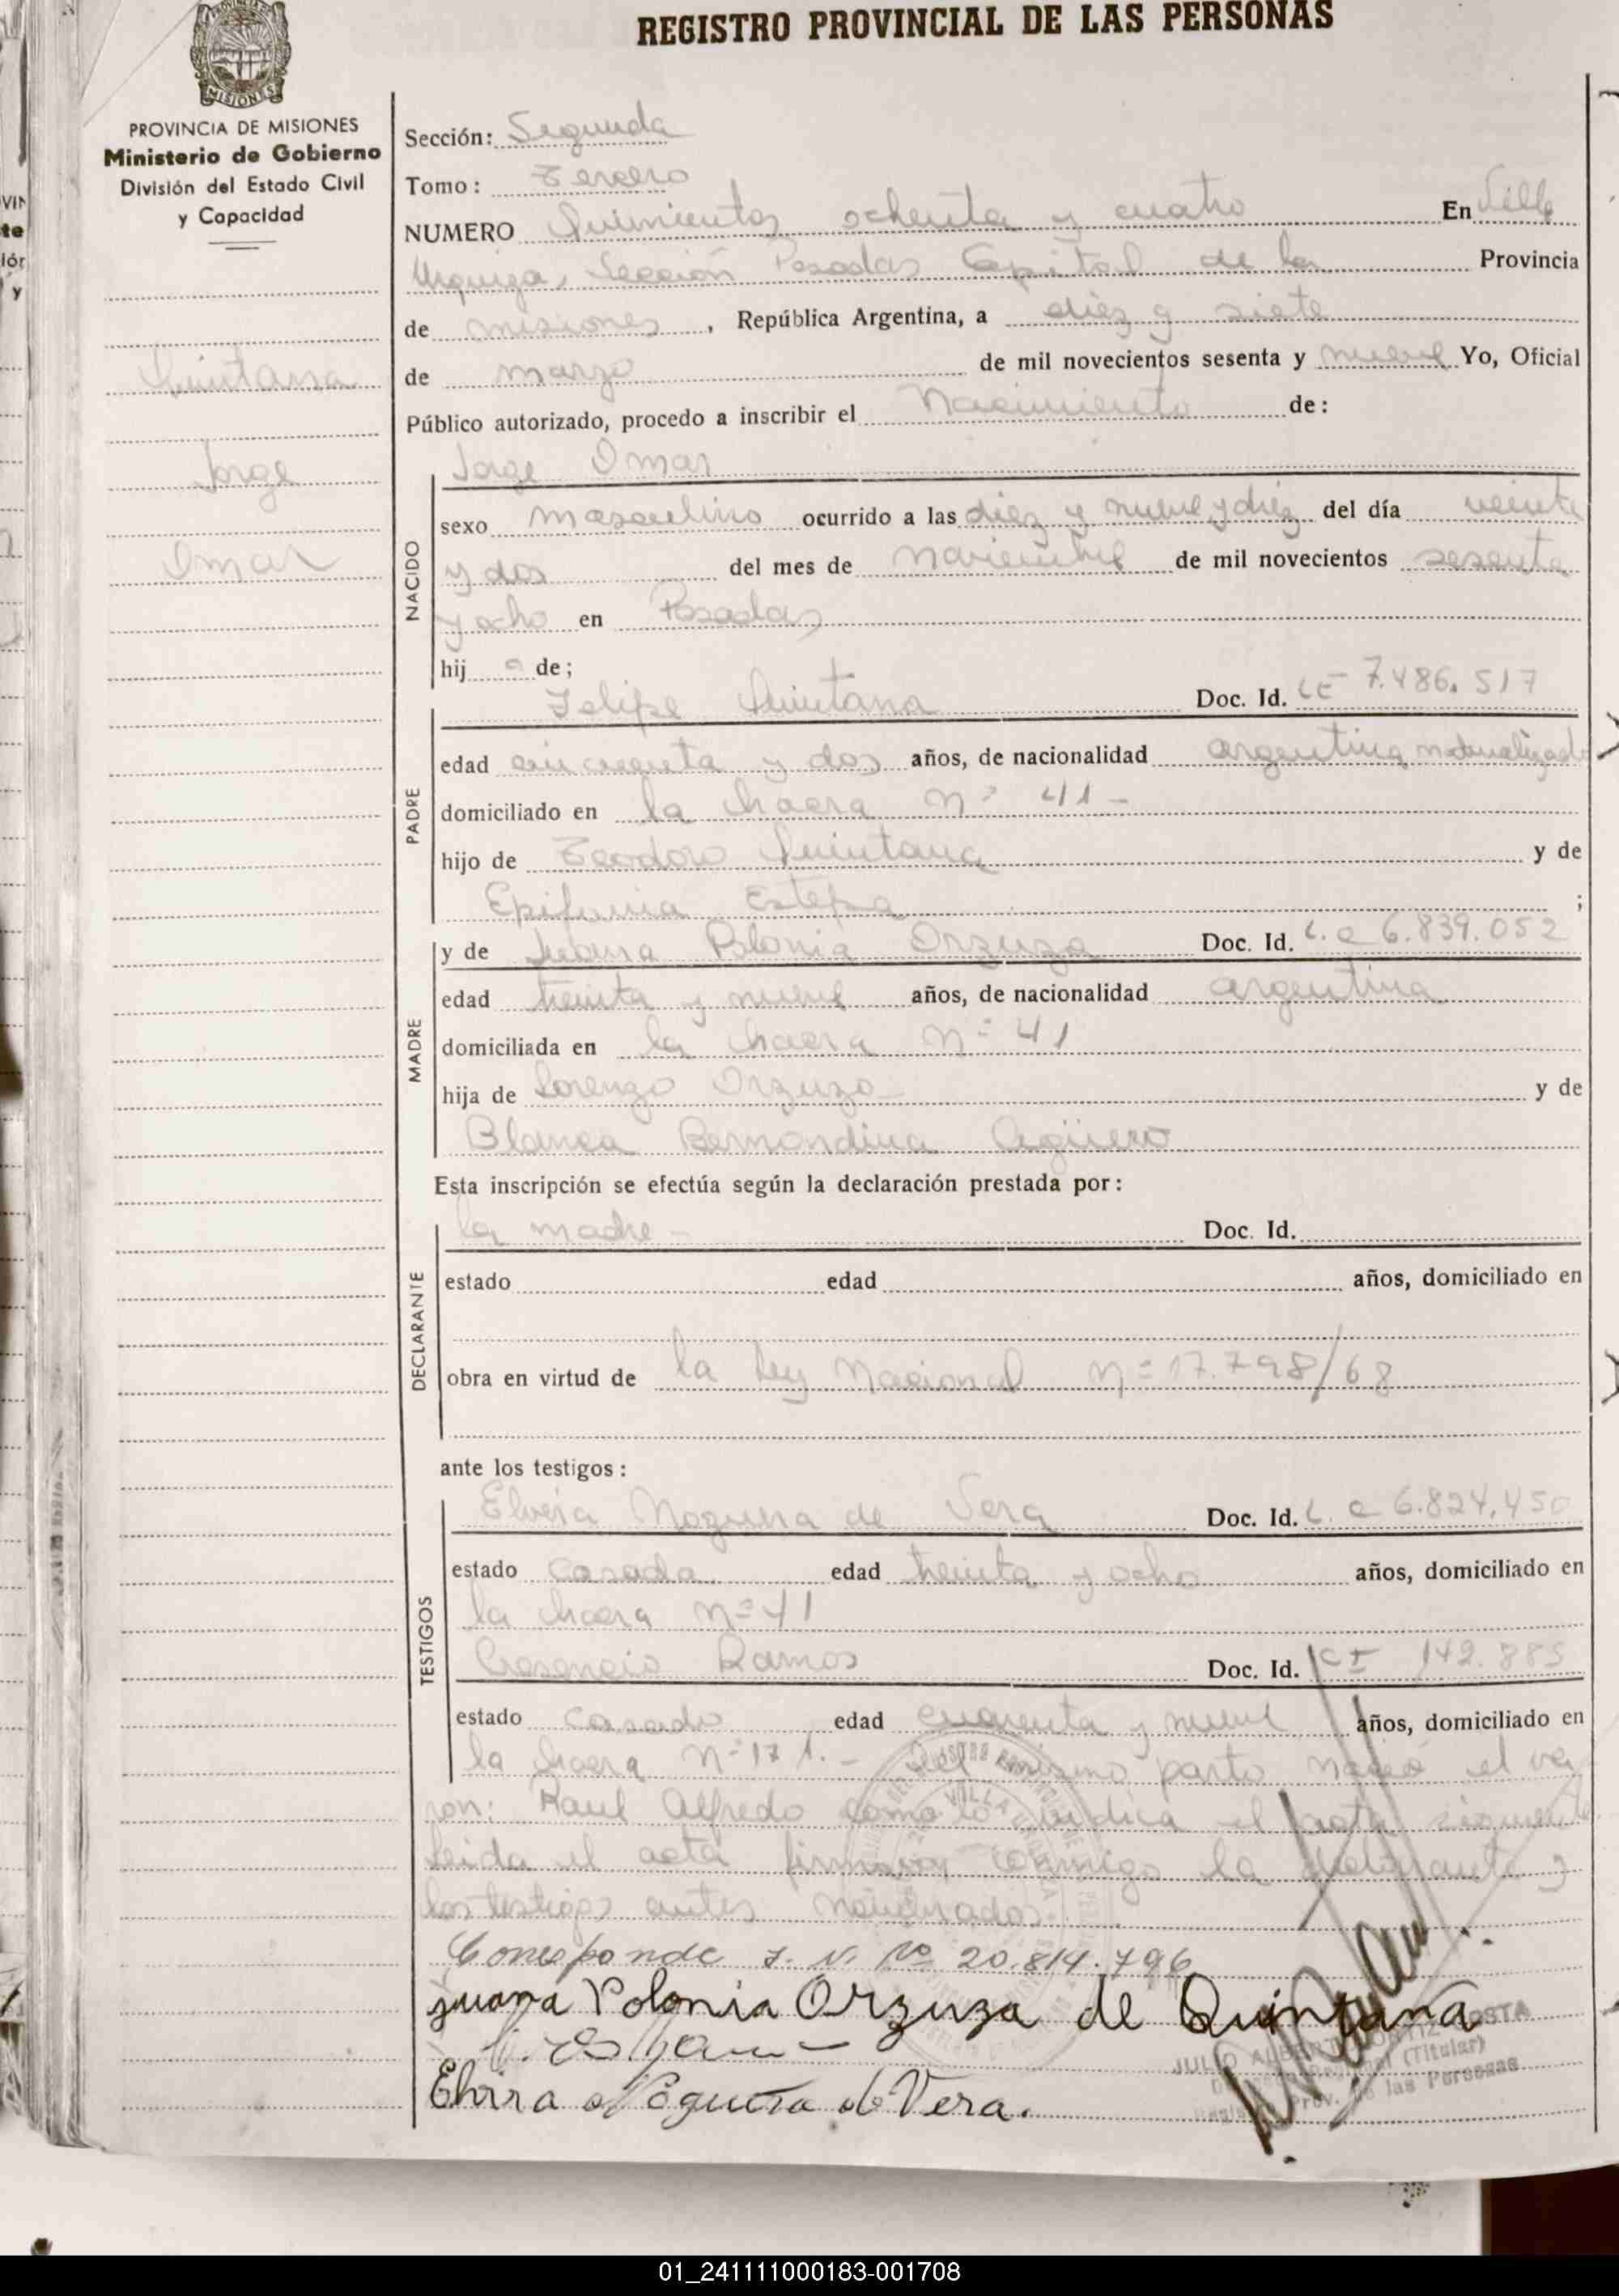 REGISTRO PROVINCIAL DE LAS PERSONAS
MISIONES
PROVINCIA DE MISIONES
Ministerio de Gobierno
División del Estado Civil
y Capacidad
Quintana
Jorge
Omar
Sección: Segunda
Tomo: Tercero
NUMERO Quinientos ochenta y cuatro En Villa
Urquiza, Sección Posadas Capital de la Provincia
de misiones, República Argentina, a diez y siete
de marzo de mil novecientos sesenta y nueve Yo, Oficial
Público autorizado, procedo a inscribir el Nacimiento de:
Jorge Omar
NACIDO
sexo masculino ocurrido a las diez y nueve y diez del día veinte
y dos del mes de noviembre de mil novecientos sesenta
y ocho en Posadas
hij o de;
Felipe Quintana Doc. Id. LE 7.486.517
PADRE
edad cincuenta y dos años, de nacionalidad argentina naturalizado
domiciliado en la chacra n° 41-
hijo de Teodoro Quintana y de
Epifania Estepa ;
y de Juana Polonia Orzuza Doc. Id. L.C 6.839.052
MADRE
edad treinta y nueve años, de nacionalidad argentina
domiciliada en la chacra n° 41
hija de Lorenzo Orzuzo- y de
Blanca Bernondina Agüero
Esta inscripción se efectúa según la declaración prestada por:
la madre - Doc. Id.
DECLARANTE
estado edad años, domiciliado en
obra en virtud de la Ley Nacional n° 17.798/68
ante los testigos:
TESTIGOS
Elvira Noguera de Vera Doc. Id. L.C 6.824.450
estado casada edad treinta y ocho años, domiciliado en
la chacra n° 41
Cresencio Ramos Doc. Id. CI 142.885
estado casado edad cuarenta y nueve años, domiciliado en
la chacra n° 171.- Del mismo parto nació el va
ron: Raul Alfredo como lo indica el acta siguiente
leida el acta firmaron conmigo la declarante y
los testigos antes nombrados.
Corresponde I. N. No 20.814.796
juana Polonia Orzuza de Quintana
Elvira Noguera de Vera.
JULIO ALBERTO ORTIZ COSTA
(Titular)
Prov. de las Personas
01_241111000183-001708